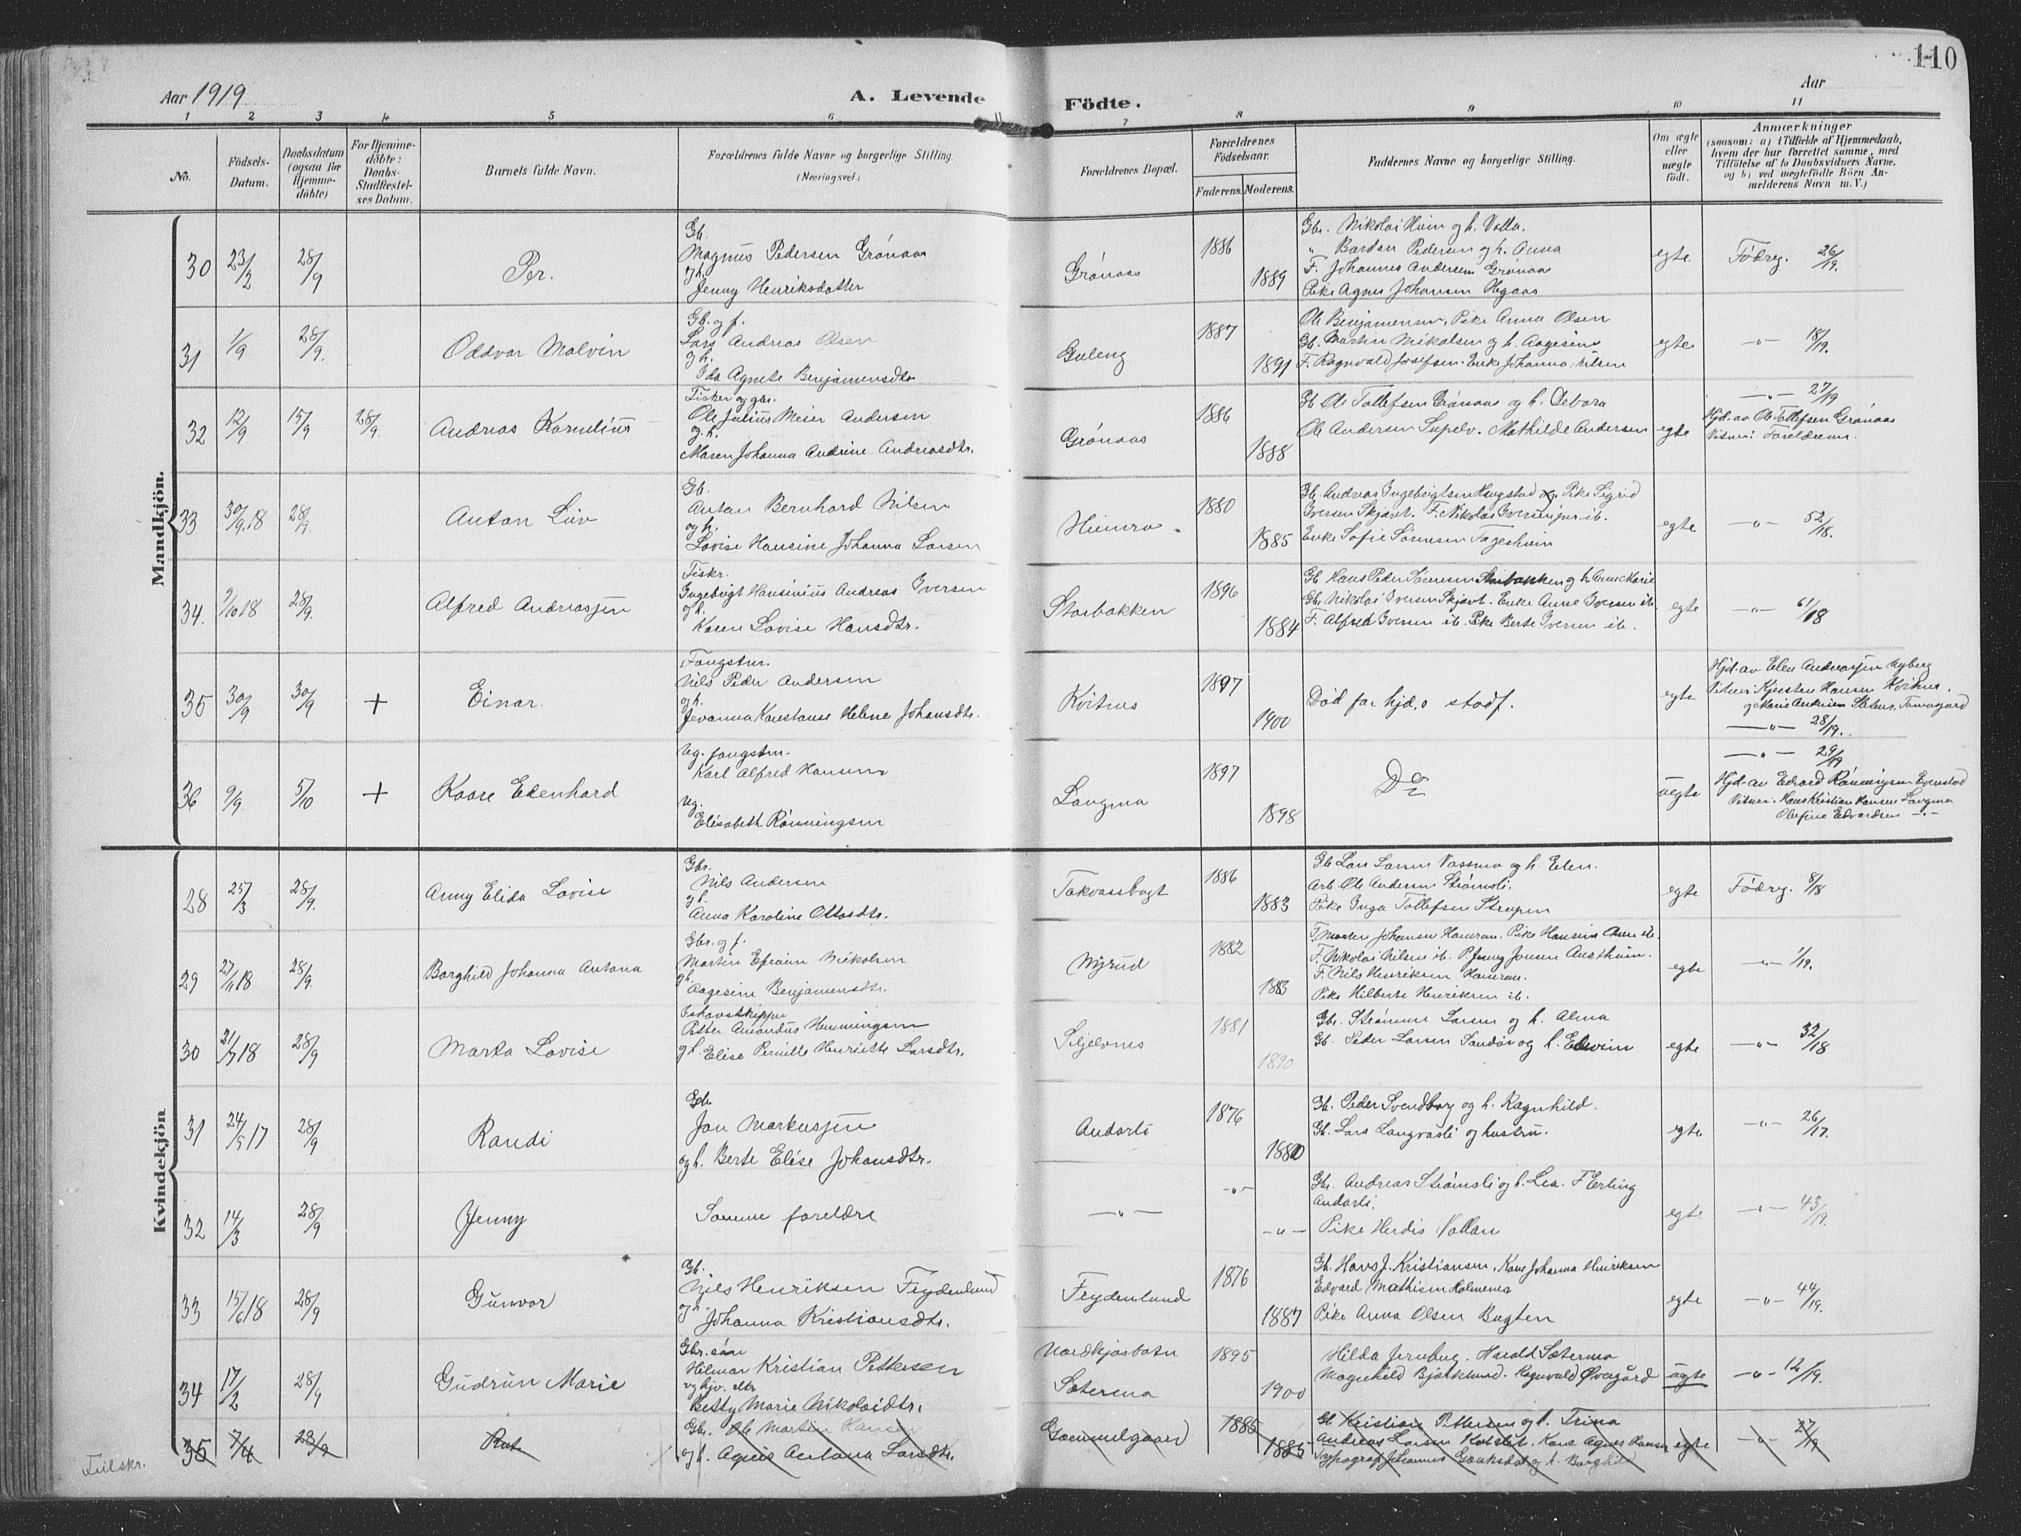 110
Aar 1919
A. Levende Födte.
Aar
1 2 3 4 5 6 7 8 9 10 11
No.
Födsels-Datum.
Daabsdatum (ogsaa för Hjemme-döbte)
For Hjemme-döbte: Daabs-Stadfæstel-ses Datum.
Barnets fulde Navn.
Forældrenes fulde Navne og borgerlige Stilling.
(Næringsvei.)
Forældrenes Bopæl.
Forældrenes Födselsaar.
Faderens. Moderens.
Faddernes Navne og borgerlige Stilling.
Om ægte eller uægte födt.
Anmærkninger
(saasom: a) i Tilfælde af Hjemmedaab,
hvem der har forrettet samme, med
Tilföielse af to Daabsvidners Navne,
og b) ved uægtefödte Börn An-
melderens Navn m. V.)
Mandkjön.
30 23/2 28/9 Per.
Gb.
Magnus Pedersen Grönaas
og h.
Jenny Henriksdatter
Grönaas 1886 1889
Gbr. Nikolai Hein og h. Valla
" Bardon Pedersen og h. Anna
F. Johannes Andersen Grönaas
Pike Agnes Johansen Hegaas
egte Födreg. 26/19.
31 1/9 28/9. Oddvar Malvin
Gb. og f.
Lars Andreas Olsen
og h.
Ida Agnete Benjamensdtr
Guleng 1887 1891
Ole Benjamensen, Pike Anna Olsen
Gb. Martin Nikolsen og h. Aagesine
F. Ragnvald Josefsen. Enke Johanna Nilsen
egte —"— 18/19.
32 12/9 15/9 28/9. Andreas Kornelius
Fisker og gbr.
Ole Julius Meier Andersen
og h.
Maren Johanna Andrine Andreasdtr.
Grönaas 1886 1888
Gb Ole Tollefsen Grönaas og h. Debora
Ole Andersen Mathilde Andersen
egte —"— 27/19
Hjd. av Ole Tollefsen Grönaas
Vitner: Foreldrene.
33 30/9.18 28/9. Anton Liiv
Gb.
Anton Bernhard Nilsen
og h.
Lovise Hansine Johanna Larsen
Heimro 1880 1885
Gb. Andreas Ingebrigtsen Haugstad og Pike Sigrid
Iversen Skjævt. F. Nikolas Iversen jun ib.
Enke Sofie Sörensen Fagerheim
egte —"— 52/18.
34. 7/10 18 28/9. Alfred Andreassen
Fiskr.
Ingebrigt Hansinius Andreas Iversen
og h.
Karen Lovise Hansdtr.
Storbakken 1896 1884
Gb Hans Peder Sörensen Storbakken og h. Anne Marie
Gbr. Nikolai Iversen Skjævt. Enke Anne Iversen ib.
F. Alfred Iversen ib. Pike Berte Iversen ib.
egte —"— 61/18
35 30/9 30/9 + Einar.
Fangstm.
Nils Peder Andersen
og h.
Jevanna Konstanse Helene Johansdtr.
Kvitnes 1897 1900
Död för hjd. s stadf.
egte
Hjd. av Elen Andreassen Nyberg
Vitner: Kjersten Hansen Kvitnes.
og Marie Andersen
—"— 28/19.
36 9/9. 5/10 + Kaare Edenhard
Ug. fangstm.
Karl Alfred Hansen
Ug.
Elisabeth Rönningsen
Langma 1897 1898
Do
uegte —"— 29/19
Hjd. av Edvard Rönningsen
Vitner: Hans Kristian Hansen Langma
Olefine Edvardsen —"—
Kvindekjön
28 25/3 28/9. Anny Elida Lovise
Gbr.
Nils Andersen
og h.
Anna Karoline Ottosdtr.
Takvassbugt 1886 1883
Gb Lars Larsen Vassmo og h. Elen.
Arb. Ole Andersen Strömsli.
Pike Inga Tollefsen Strupen
egte Födreg. 8/18
29 27/11 18 28/9. Borghild Johanna Antona
Gbr. og f.
Martin Efraim Nikolsen
og h.
Aagesine Benjamensdtr.
Nyrud 1882 1883
F. Morten Johansen Hamran. Pike Hansine Olsen ib.
F. Nikolai Nilsen ib. P. Jenny Jonsen Austheim.
F. Nils Henriksen Hamran.
Pike Hilberte Henriksen ib.
egte —"— 1/19.
30 21/7 18 28/9 Marta Lovise
Ishavsskipper
Petter Amandus Henningsen
og h. Elise Pernille Henriette Larsdtr.
Siljelvnes 1881 1890
Gbr. Strömme Larsen og h. Alma
Gb. Peder Larsen Sandöre og h. Edevine
egte —"— 32/18
31 24/5 17 28/9 Randi
Gb
Jon Markussen
og h. Berte Elise Johansdtr.
Andersli 1876 1880
Gb. Peder Svendborg og h. Ragnhild.
Gb. Lars Langvasli og hustru.
egte —"— 26/17.
32 14/3 28/9. Jenny
Samme foreldre
—"— —"— —"—
Gbr. Andreas Strömsli og h. Lea. F Erling
Andersli.
Pike Herdis Vollan
egte —"— 43/19.
33 15/6 18 28/9 Gunvor
Gb.
Nils Henriksen Frydenlund
og h.
Johanna Kristiansdtr.
Frydenlund 1876 1887
Gb. Hans J. Kristiansen, Kone Johanna Henriksen
Edvard Mathisen Holmenes
Pike Anna Olsen Bugten
egte —"— 44/19.
34 17/2 28/9 Gudrun Marie
Gbr. sön
Hilmar Kristian Pettersen
og hjv. dtr
Betty Marie Nikolaidtr.
Nordkjosbotn 1895
Sætermo 1900
Hilda Jernberg. Harald Sætermo
Magnhild Bjorklund. Ragnvald Övergård
uegte —"— 12/19.
35 7/4 28/9 Rut
Gbr. Ole Martin Hansen
og h. Agnes Antona Larsdtr.
Gammelgaard 1885 1885
Gb Kristian Pettersen og h. Trina
Andreas Larsen Kone Agnes Hansen
Typograf Johannes og h. Borghild
egte —"— 27/19